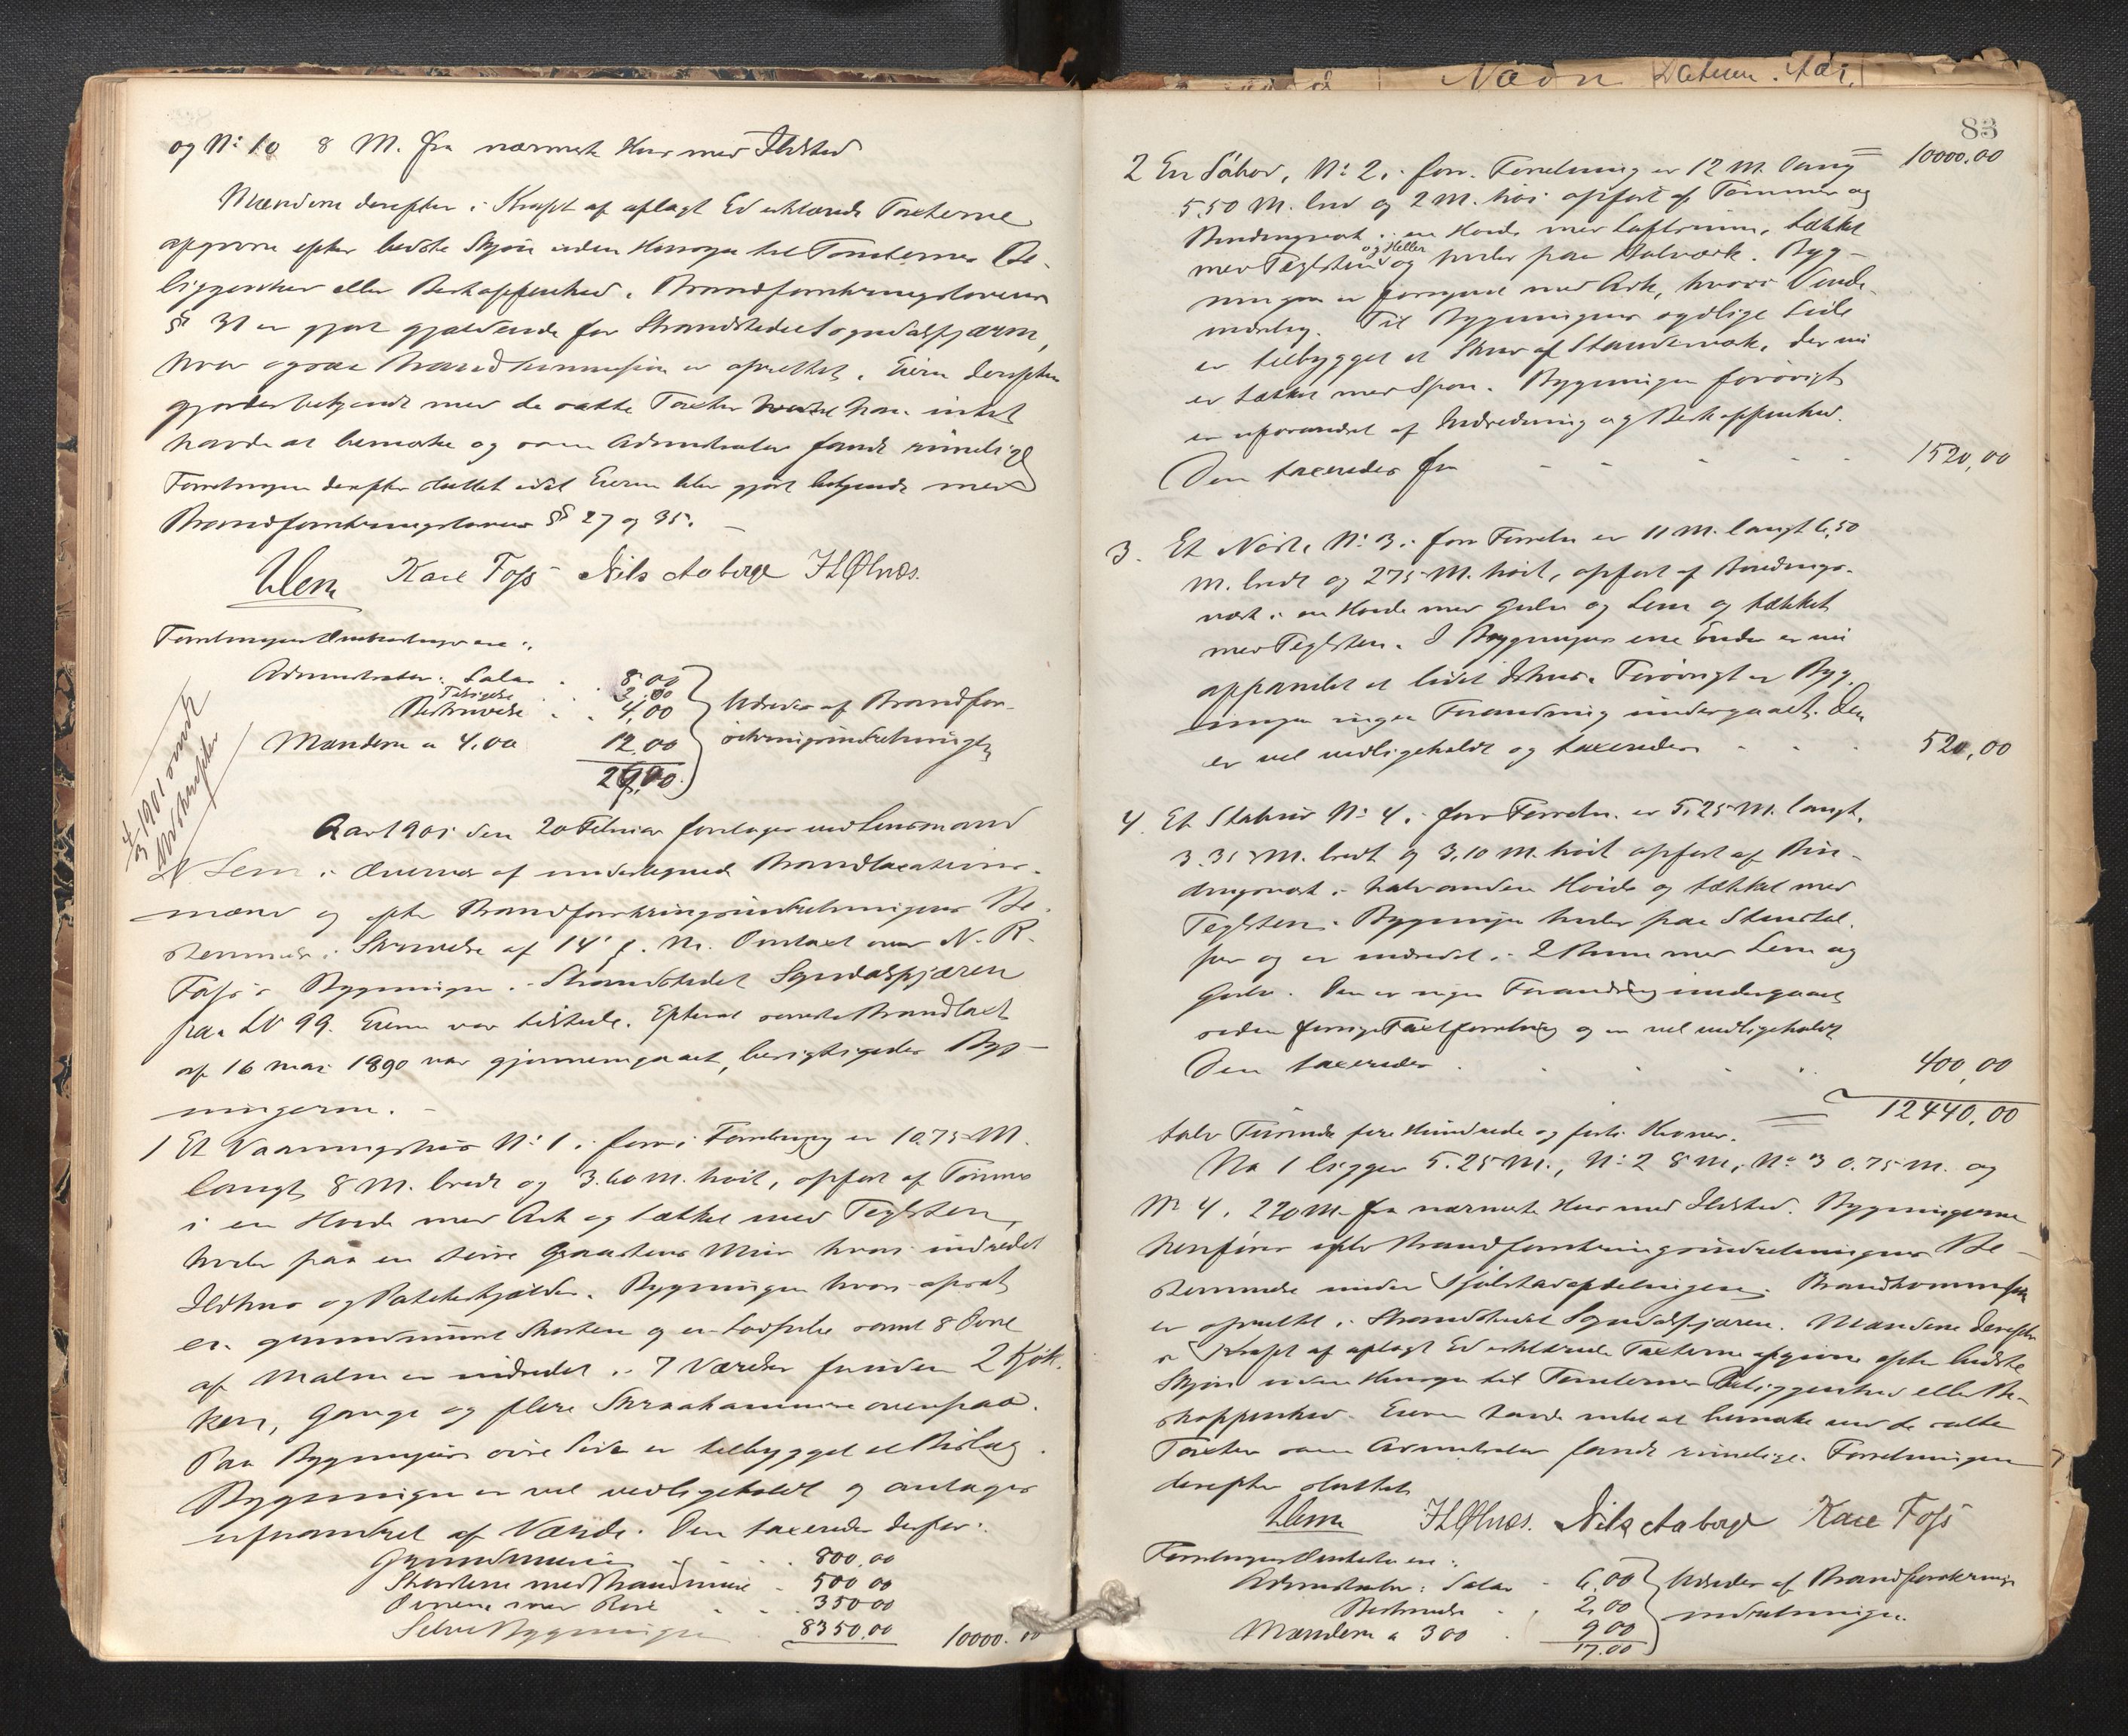 og No 10 8 M. fra nærmeste Hus med Ildsted
Mændene derefter i Kraft af aflagt Ed erklærede Taxterne
afgivne efter bedste Skjøn uden Hensyn til Tomternes Be-
liggenhed eller Beskaffenhed. Brandforsikringslovens
§ 31 er gjort gjældende for Strandstedet Sogndalsfjæren,
hvor ogsaa Brandkommission er oprettet. Eieren derefter
gjordes bekjendt med de satte Taxter han intet
havde at bemærke og som Administrator fandt rimelige
Forretningen derefter sluttet idet Eieren blev gjort bekjendt med
Brandforsikringslovens §§ 27 og 35.
Lem Kare Foss Nils Aaberge
Forretningens Omkostninger ere:
Administrator: Salær 8.00
Tilsigelse 2,00
Beskrivelse 4,00
Mændene a 4.00 12.00
Udredes af Brandfor-
sikringsindretningen
4/3 1901 sendt
Udskrifter
Aar 1901 den 20 Februar foretoges ved Lensmand
N Lem i Overvær af undertegnede Brandtaxations-
mænd og efter Brandforsikringsindretningens Be-
stemmelse i Skrivelse af 14' f. M. Omtaxt over N. R.
Foss's Bygninger i Strandstedet Sogndalsfjæren
paa LN 99. Eieren var tilstede. Efterat sidste Brandtaxt
af 16 mai 1890 var gjennemgaaet, besigtigedes Byg-
ningerne.
1 Et Vaaningshus No 1 i forr: Forretning er 10.75 M.
langt, 8 M. bredt og 3.60 M. høit, opført af Tømmer
i en Høide med Ark og tækket med Teglsten,
hviler paa en større Graastens Mur hvori indredet
Ildhus og Potetkjælder. Bygningen hvori opsat
er grundmuret Skorsten og en samt 8 Ovne
af Malm er indredet i 7 Værelser foruden 2 Kjøk-
ken, Gange og flere Skraakammere ovenpaa.
Paa Bygningens øvre Side er tilbygget et Bislag.
Bygningen er vel vedligeholdt og antages
uforandret af Værdi. Den taxeredes derfor:
Grundmuren 800.00
Skorstene med Brandmure 500 00
Ovnene med Rør 350 00
Selve Bygningen 8350.00 10000.00
83
2 En Søbod, No 2 i forr. Forretning er 12 M. lang = 10000.00
5,50 M. bred og 2 M. høi opført af Tømmer og
Bindingsverk i en Høide med Loftsrum, tækket
med Teglsten og Heller og hviler paa Bolværk. Byg-
ningen er forsynet med Ark, hvori Vinde-
indretng. Til Bygningens sydlige Side
er tilbygget et Skur af Stændervæk, der nu
er tækket med Spon. Bygningen forøvrigt
er uforandret af Indredning og Beskaffenhed.
Den taxeredes for 1520,00
3. Et Nøst, No 3 i forr Forretn er 11 M. langt 6,50
M. bredt og 2.75 M. høit, opført af Bindings-
værk i en Høide med Gulv og Lem og tækket
med Teglsten. I Bygningens ene Ende er nu
afpanelet et lidet Ishus. Forøvrigt er Byg-
ningen ingen Forandring undergaaet. Den
er vel vedligeholdt og taxeredes 520,00
4. Et Stabur No 4 i forr Forretn. er 5.25 M. langt,
3.35 M. bredt og 3,10 M. høit opført af Bin-
dingsværk i halvanden Høide og tækket med
Teglsten. Bygningen hviler paa Stenstol-
per og er indredet i 2 Rum med Lem og
Gulv. Den er ingen Forandring undergaaet
siden forrige Taxtforretning og er vel vedligeholdt
Den taxeredes 400,00
12440,00
tolv Tusinde fire Hundrede og førti Kroner.
No 1 ligger 5.25 M., No 2 8 M, No 3 0.75 M. og
No 4. 220 M. fra nærmeste Hus med Ildsted. Bygningerne
henføres efter Brandforsikringsindretningens Be-
stemmelse under Kjøbstadafdelingen. Brandkommission
er oprettet i Strandstedet Sogndalsfjæren. Mændene derefter
i Kraft af aflagt Ed erklærede Taxterne afgivne efter bedste
Skjøn uden Hensyn til Tomternes Beliggenhed eller Be-
skaffenhed. Eieren havde intet at bemærke ved de satte
Taxter som Administrator fandt rimelige. Forretningen
derefter sluttet.
Lem Nils Aaberge Kare Foss
Forretningens Omkostn. ere:
Administrator: Salær 6,00
Beskrivelse 2,00
Mændene a 3 00 9 00
17.00
Udredes af Brandforsikrings-
indretningen.
Navn Datum Aar,